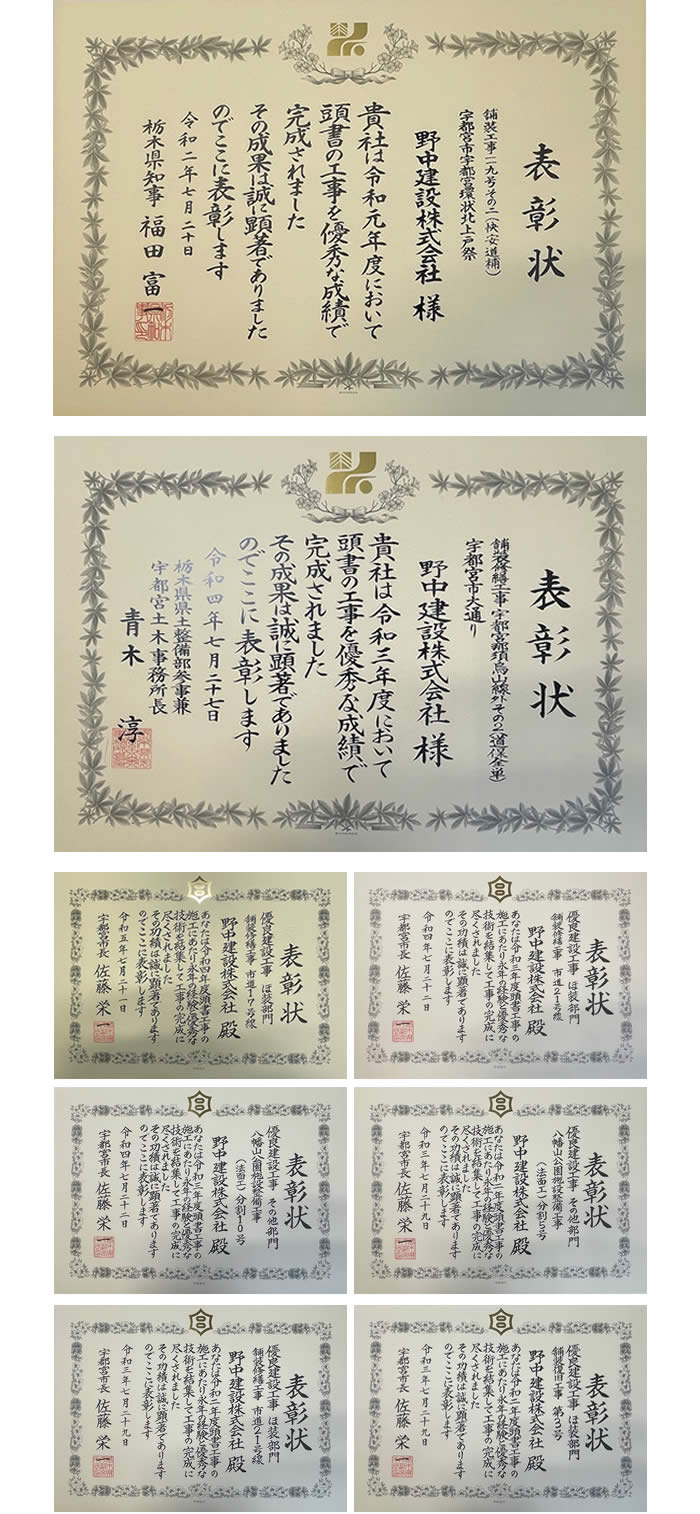 表彰状
舗装工事一一九号その二(快安道補)
宇都宮市宇都宮環状北上戸祭
野中建設株式会社 様
貴社は令和元年度において
頭書の工事を優秀な成績で
完成されました
その成果は誠に顕著でありました
のでここに表彰します
令和二年七月二十日
栃木県知事 福田富一
表彰状
舗装修繕工事 宇都宮那須烏山線外その2(道保全単)
宇都宮市大通り
野中建設株式会社 様
貴社は令和三年度において
頭書の工事を優秀な成績で
完成されました
その成果は誠に顕著でありました
のでここに表彰します
令和四年七月二十七日
栃木県県土整備部参事兼
宇都宮土木事務所長
青木 淳
表彰状
優良建設工事 ほ装部門
舗装修繕工事 市道17号線
野中建設株式会社 殿
あなたは令和四年度頭書工事の
施工にあたり永年の経験と優秀な
技術を結集して工事の完成に
尽くされました
その功績は誠に顕著であります
のでここに表彰します
令和五年七月二十一日
宇都宮市長 佐藤栄一
表彰状
優良建設工事 ほ装部門
舗装修繕工事 市道21号線
野中建設株式会社 殿
あなたは令和三年度頭書工事の
施工にあたり永年の経験と優秀な
技術を結集して工事の完成に
尽くされました
その功績は誠に顕著であります
のでここに表彰します
令和四年七月二十二日
宇都宮市長 佐藤栄一
表彰状
優良建設工事 その他部門
八幡山公園施設整備工事
(法面工)分割10号
野中建設株式会社 殿
あなたは令和三年度頭書工事の
施工にあたり永年の経験と優秀な
技術を結集して工事の完成に
尽くされました
その功績は誠に顕著であります
のでここに表彰します
令和四年七月二十二日
宇都宮市長 佐藤栄一
表彰状
優良建設工事 その他部門
八幡山公園施設整備工事
(法面工)分割5号
野中建設株式会社 殿
あなたは令和二年度頭書工事の
施工にあたり永年の経験と優秀な
技術を結集して工事の完成に
尽くされました
その功績は誠に顕著であります
のでここに表彰します
令和三年七月二十九日
宇都宮市長 佐藤栄一
表彰状
優良建設工事 ほ装部門
舗装修繕工事 市道21号線
野中建設株式会社 殿
あなたは令和二年度頭書工事の
施工にあたり永年の経験と優秀な
技術を結集して工事の完成に
尽くされました
その功績は誠に顕著であります
のでここに表彰します
令和三年七月二十九日
宇都宮市長 佐藤栄一
表彰状
優良建設工事 ほ装部門
舗装復旧工事 第3号
野中建設株式会社 殿
あなたは令和二年度頭書工事の
施工にあたり永年の経験と優秀な
技術を結集して工事の完成に
尽くされました
その功績は誠に顕著であります
のでここに表彰します
令和三年七月二十九日
宇都宮市長 佐藤栄一